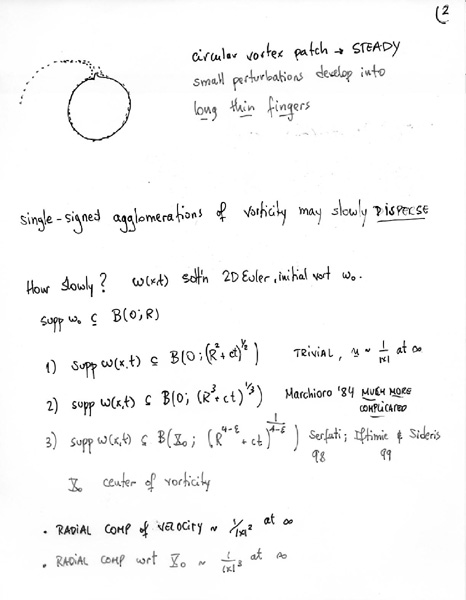 2
circular vortex patch → STEADY
small perturbations develop into
long thin fingers
single-signed agglomerations of vorticity may slowly DISPERSE
How slowly? ω(x,t) sol'n 2D Euler, initial vort ω₀.
supp ω₀ ⊆ B(0;R)
1) supp ω(x,t) ⊆ B(0;(R²+ct)^{1/2}) TRIVIAL, u ~ 1/|x| at ∞
2) supp ω(x,t) ⊆ B(0;(R³+ct)^{1/3}) Marchioro '84 MUCH MORE
COMPLICATED
3) supp ω(x,t) ⊆ B(X₀;(R^{4-ε}+ct)^{1/(4-ε)}) Serfati; Iftimie & Sideris
98 99
X₀ center of vorticity
• RADIAL COMP of VELOCITY ~ 1/|x|² at ∞
• RADIAL COMP wrt X₀ ~ 1/|x|³ at ∞